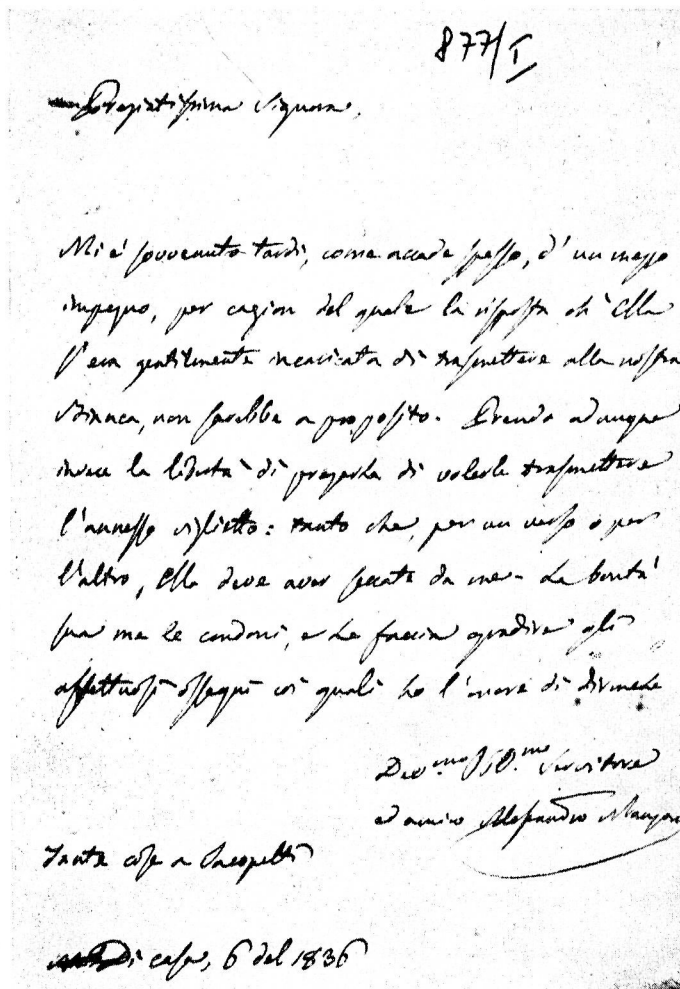 877/I
Pregiatissima Signora,
Mi è sovvenuto tardi, come accade spesso, d'un mezzo
impegno, per cagion del quale la risposta ch'Ella
s'era gentilmente incaricata di trasmettere alla nostra
Bianca, non sarebbe a proposito. Prendo adunque
invece la libertà di pregarla di volerle trasmettere
l'annesso viglietto: tanto che, per un verso o per
l'altro, Ella deve aver seccate da me. La bontà
sua me le condoni, e Le faccia gradire gli
affettuosi ossequi coi quali ho l'onore di dirmele
Dev.mo Obb.mo Servitore
ed amico Alessandro Manzoni
Tante cose a Jacopetti
Di casa, 6 del 1836